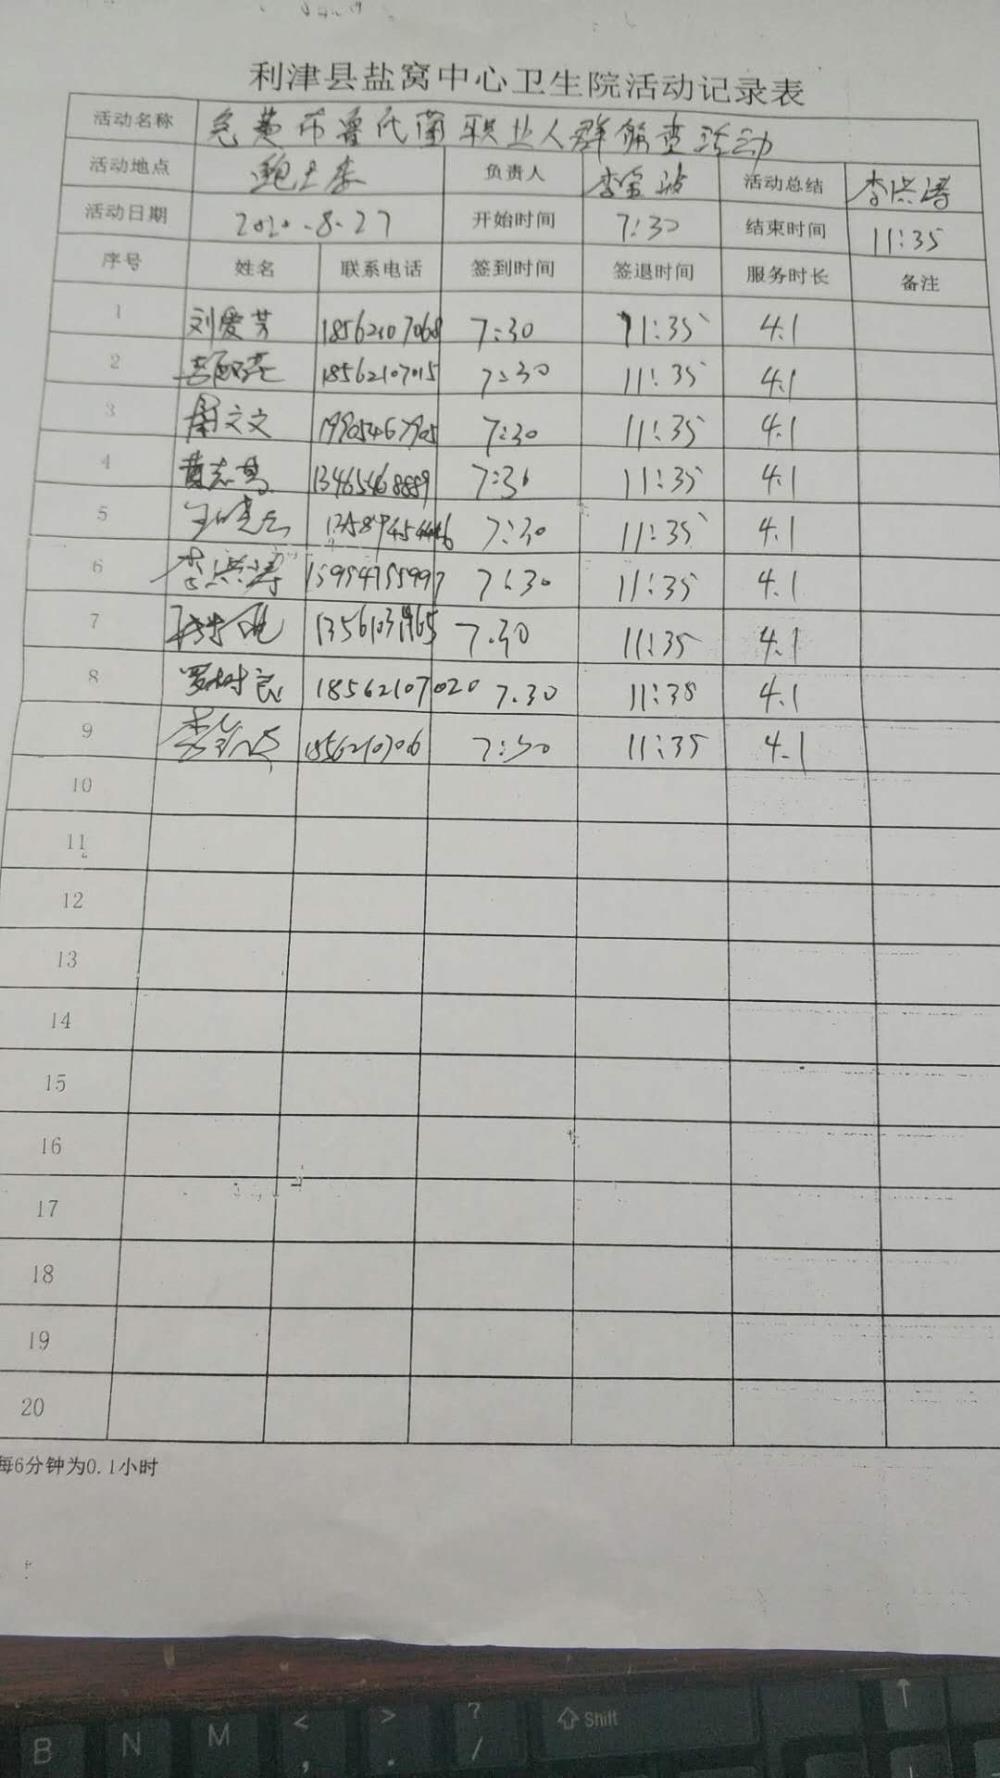 利津县盐窝中心卫生院活动记录表
活动名称 免费布鲁氏菌职业人群筛查活动
活动地点 负责人 活动总结 李洪涛
活动日期 2020.8.27 开始时间 7:30 结束时间 11:35
序号 姓名 联系电话 签到时间 签退时间 服务时长 备注
1 刘爱芳 18562107068 7:30 11:35 4.1
2 18562107015 7:30 11:35 4.1
3 周文文 19905467905 7:30 11:35 4.1
4 13465468889 7:30 11:35 4.1
5 7:30 11:35 4.1
6 李洪涛 15954755997 7:30 11:35 4.1
7 7.30 11:35 4.1
8 罗树良 18562107020 7.30 11:35 4.1
9 7:30 11:35 4.1
10
11
12
13
14
15
16
17
18
19
20
每6分钟为0.1小时
B N M < , > . ? / Shift ↑